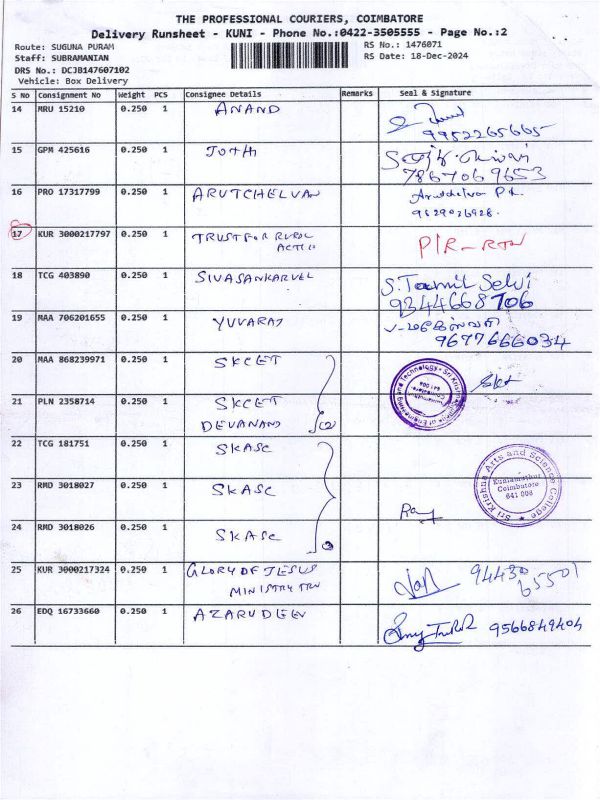 THE PROFESSIONAL COURIERS, COIMBATORE
Delivery Runsheet - KUNI - Phone No.:0422-3505555 - Page No.:2
Route: SUGUNA PURAM
Staff: SUBRAMANIAN
DRS No.: DCJB147607102
Vehicle: Box Delivery
RS No.: 1476071
RS Date: 18-Dec-2024
S No Consignment No Weight PCS Consignee Details Remarks Seal & Signature
14 MRU 15210 0.250 1 ANAND
9952265665
15 GPM 425616 0.250 1 JOTHI
7867069653
16 PRO 17317799 0.250 1 ARUTCHELVAN
Arutchelvan P.
9629026928.
17 KUR 3000217797 0.250 1 TRUST FOR RURAL
ACTION
P/R-RTN
18 TCG 403890 0.250 1 SIVASANKARVEL S.Tamil Selvi
9344668706
19 MAA 706201655 0.250 1 YUVARAJ
9677666034
20 MAA 868239971 0.250 1 SKCET
21 PLN 2358714 0.250 1 SKCET
DEVANAND
22 TCG 181751 0.250 1 SKASC
23 RMD 3018027 0.250 1 SKASC
24 RMD 3018026 0.250 1 SKASC
Sri Krishna Arts and Science College
Kuniamuthur
Coimbatore
641 008
25 KUR 3000217324 0.250 1 GLORY OF JESUS
MINISTRY TRN
94430
65501
26 EDQ 16733660 0.250 1 AZARUDEEN 9566849404